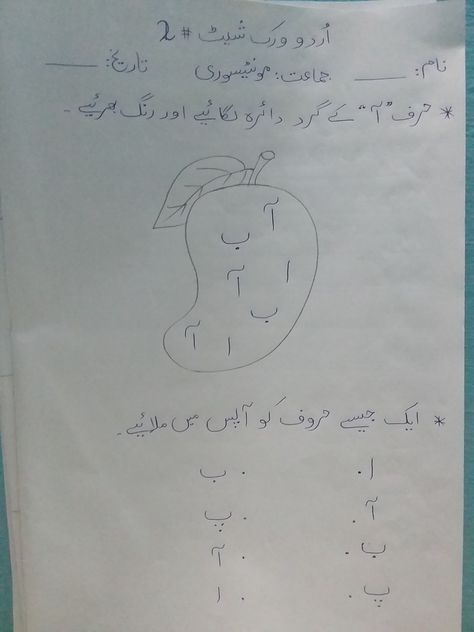 اُردو ورک شیٹ # 2
نام: ____ جماعت: مونٹیسوری تاریخ: ____
* حرف "آ" کے گرد دائرہ لگائیے اور رنگ بھریئے ۔
آ
ب
ا
آ
ب
آ ا
* ایک جیسے حروف کو آپس میں ملائیے۔
ا . . ب
آ . . پ
ب . . آ
پ . . ا